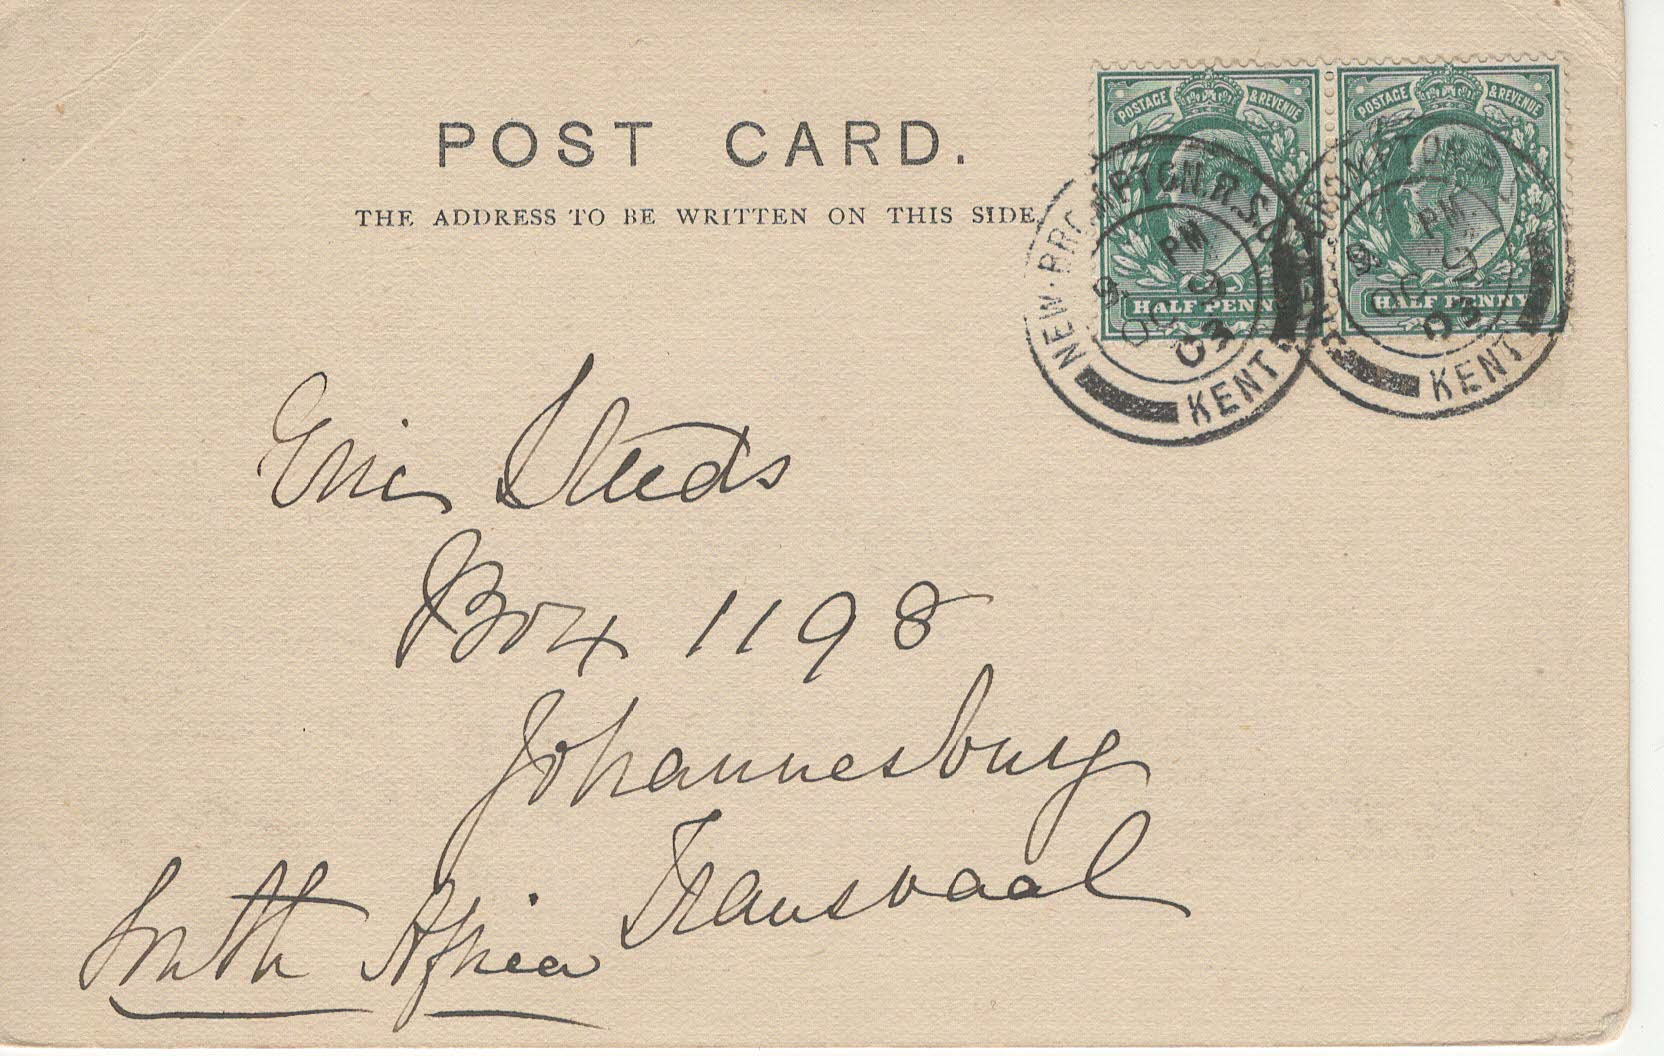 POST CARD.
THE ADDRESS TO BE WRITTEN ON THIS SIDE
POSTAGE & REVENUE
HALF PENNY
POSTAGE & REVENUE
HALF PENNY
NEW·BROMPTON.R.S.O.
PM
9
OC 9
03
KENT
BROMPTON
PM
9
OC 9
03
KENT
Eric
Box 1198
Johannesburg
Transvaal
South Africa